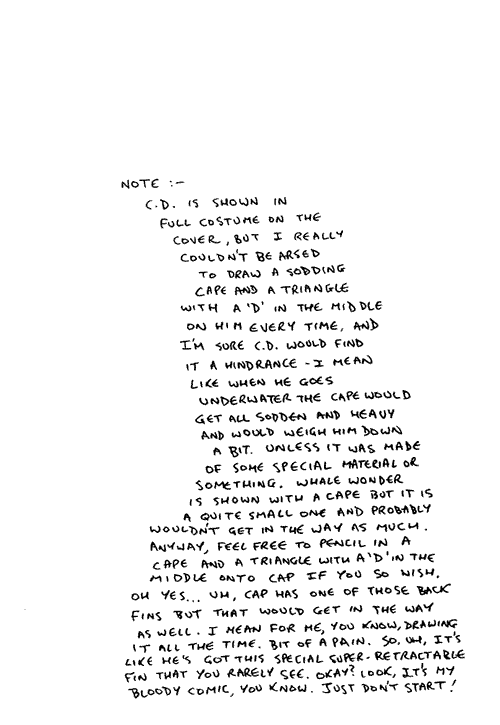 NOTE :-
C.D. IS SHOWN IN
FULL COSTUME ON THE
COVER, BUT I REALLY
COULDN'T BE ARSED
TO DRAW A SODDING
CAPE AND A TRIANGLE
WITH A 'D' IN THE MIDDLE
ON HIM EVERY TIME, AND
I'M SURE C.D. WOULD FIND
IT A HINDRANCE - I MEAN
LIKE WHEN HE GOES
UNDERWATER THE CAPE WOULD
GET ALL SODDEN AND HEAVY
AND WOULD WEIGH HIM DOWN
A BIT. UNLESS IT WAS MADE
OF SOME SPECIAL MATERIAL OR
SOMETHING. WHALE WONDER
IS SHOWN WITH A CAPE BUT IT IS
A QUITE SMALL ONE AND PROBABLY
WOULDN'T GET IN THE WAY AS MUCH.
ANYWAY, FEEL FREE TO PENCIL IN A
CAPE AND A TRIANGLE WITH A 'D' IN THE
MIDDLE ONTO CAP IF YOU SO WISH.
OH YES... UH, CAP HAS ONE OF THOSE BACK
FINS BUT THAT WOULD GET IN THE WAY
AS WELL. I MEAN FOR ME, YOU KNOW, DRAWING
IT ALL THE TIME. BIT OF A PAIN. SO, UH, IT'S
LIKE HE'S GOT THIS SPECIAL SUPER-RETRACTABLE
FIN THAT YOU RARELY SEE. OKAY? LOOK, IT'S MY
BLOODY COMIC, YOU KNOW. JUST DON'T START!